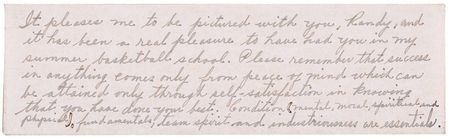 It pleases me to be pictured with you, Randy, and
it has been a real pleasure to have had you in my
summer basketball school. Please remember that success
in anything comes only from peace of mind which can
be attained only through self-satisfaction in knowing
that you have done your best. Condition (mental, moral, spiritual, and
physical), fundamentals, team spirit and industriousness are essentials.